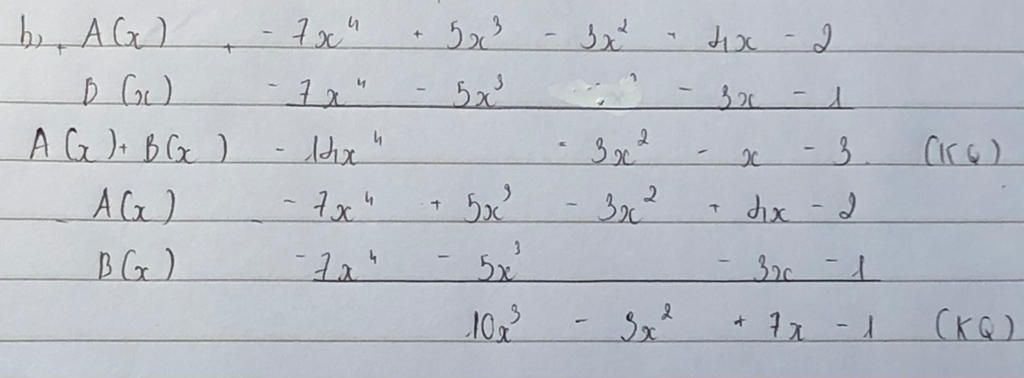 b, + A(x) + - 7x⁴ + 5x³ - 3x² + 4x - 2
B(x) - 7x⁴ - 5x³ - 3x - 1
A(x) + B(x) - 14x⁴ - 3x² - x - 3 (KQ)
A(x) - 7x⁴ + 5x³ - 3x² + 4x - 2
B(x) - 7x⁴ - 5x³ - 3x - 1
10x³ - 3x² + 7x - 1 (KQ)